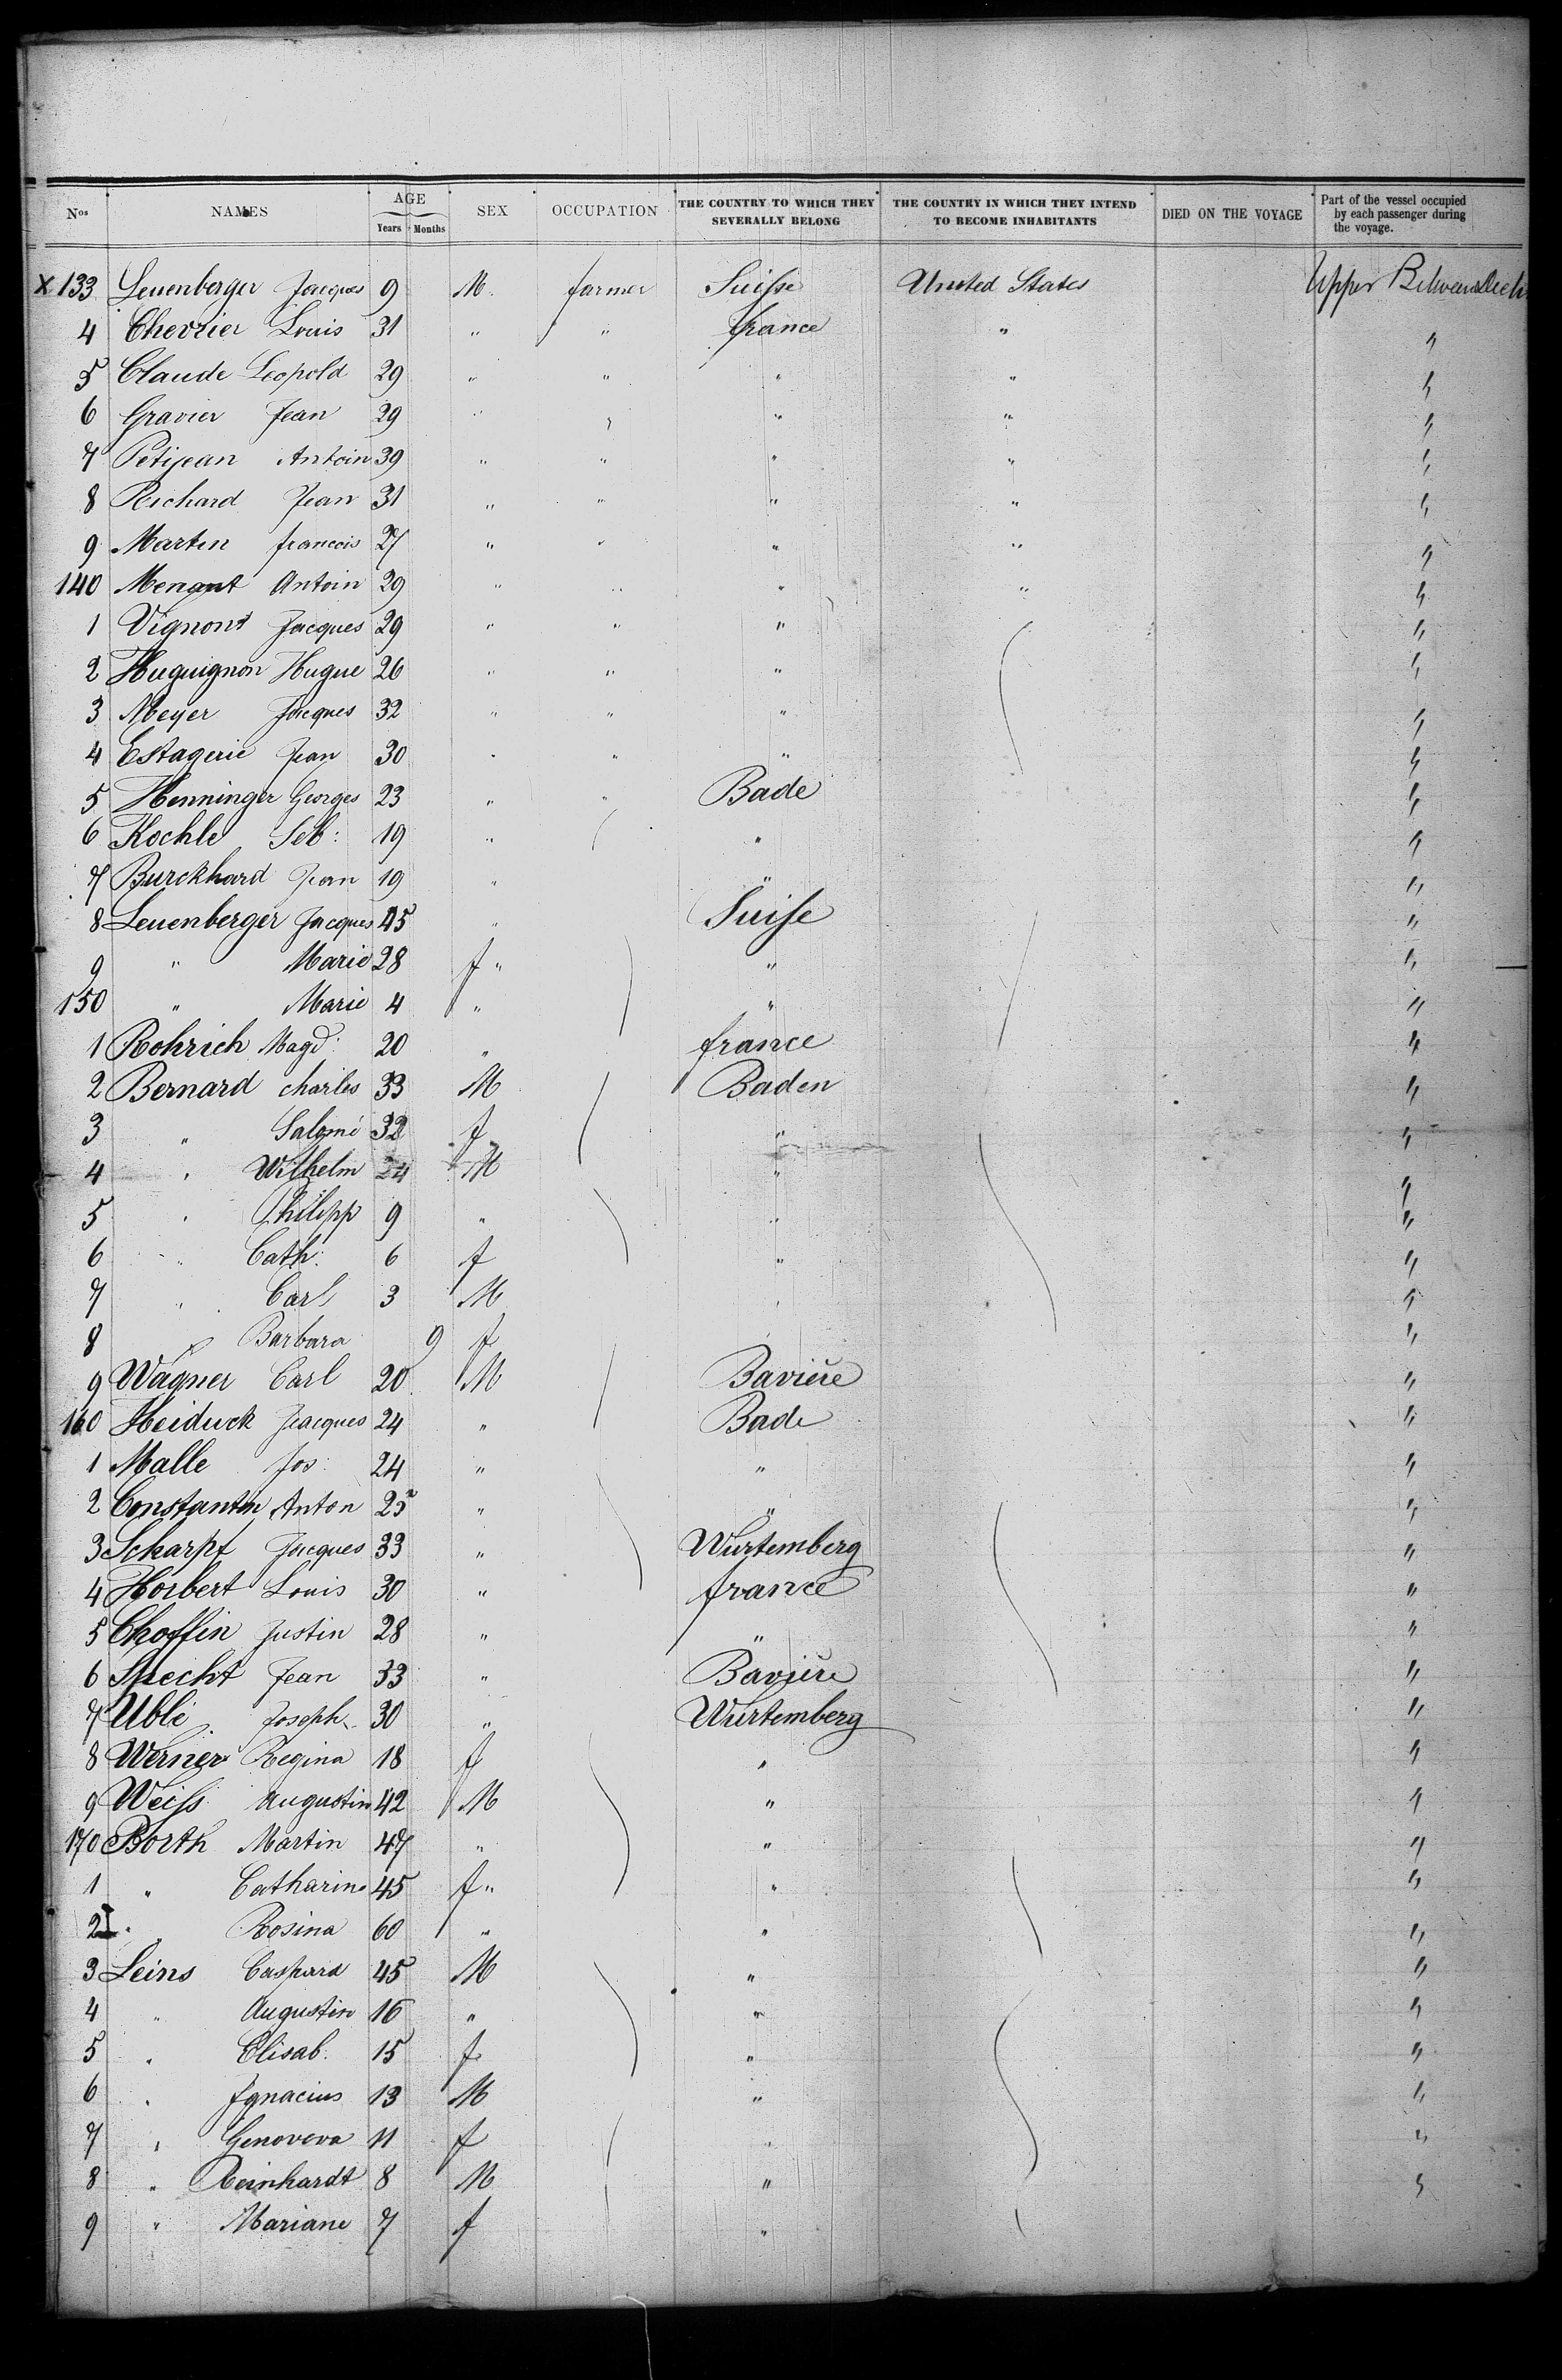 Nos NAMES AGE Years Months SEX OCCUPATION THE COUNTRY TO WHICH THEY SEVERALLY BELONG THE COUNTRY IN WHICH THEY INTEND TO BECOME INHABITANTS DIED ON THE VOYAGE Part of the vessel occupied by each passenger during the voyage.
X 133 Leuenberger Jacques 9 M. farmer Suisse United States Upper Between Deck
4 Chevrier Louis 31 " " france " "
5 Claude Leopold 29 " " " " "
6 Gravier Jean 29 " " " " "
7 Petijean Antoin 39 " " " " "
8 Richard Jean 31 " " " " "
9 Martin francois 27 " " " " "
140 Menant Antoin 29 " " " " "
1 Vignont Jacques 29 " " " "
2 Huguignon Hugue 26 " " " "
3 Meyer Jacques 32 " " " "
4 Estagerie Jean 30 " " " "
5 Henninger Georges 23 " " Bade "
6 Kochle Seb: 19 " " "
7 Burckhard Jean 19 " " "
8 Leuenberger Jacques 45 " Suisse "
9 " Marie 28 f " " "
150 " Marie 4 " " "
1 Rohrich Magd: 20 " france "
2 Bernard charles 33 M Baden "
3 " Salomé 32 f " "
4 " Wilhelm 24 M " "
5 " Philipp 9 " " "
6 " Cath: 6 f " "
7 " Carl 3 M " "
8 " Barbara 9 f " "
9 Wagner Carl 20 M Bavière "
160 Heiduck Jacques 24 " Bade "
1 Malle Jos: 24 " " "
2 Constantin Anton 25 " " "
3 Scharpf Jacques 33 " Wurtemberg "
4 Horbert Louis 30 " france "
5 Choffin Justin 28 " " "
6 Specht Jean 33 " Bavière "
7 Uble Joseph 30 " Wurtemberg "
8 Werner Regina 18 f " "
9 Weiss Augustin 42 M " "
170 Borth Martin 47 " " "
1 " Catharine 45 f " " "
2 " Rosina 60 " " "
3 Leins Caspard 45 M " "
4 " Augustin 16 " " "
5 " Elisab. 15 f " "
6 " Ignacius 13 M " "
7 " Genoveva 11 f " "
8 " Reinhardt 8 M " "
9 " Mariane 7 f "